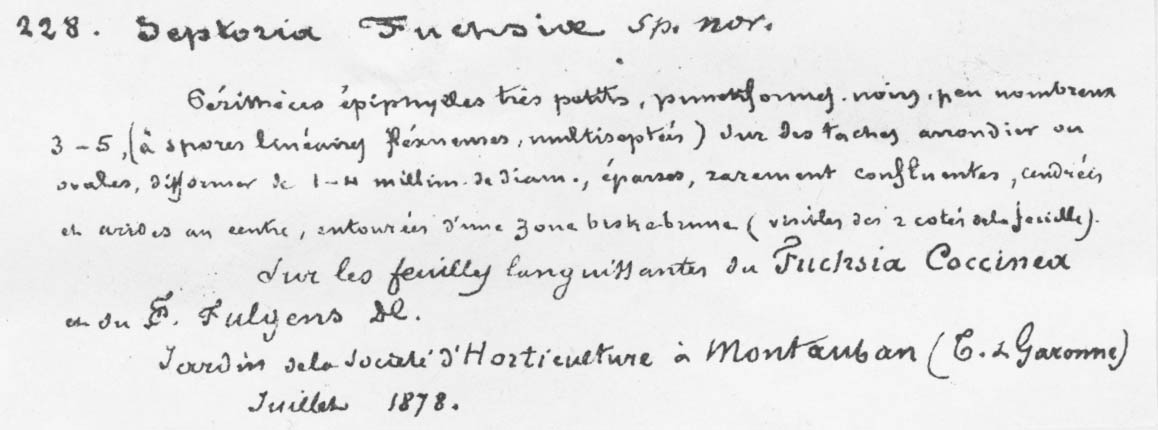 228. Septoria Fuchsiæ sp. nov.
Périthèces épiphylles très petits, punctiformes, noirs, peu nombreux
3-5, (à spores linéaires fléxueuses, multiseptées) sur des taches arrondies ou
ovales, difformes de 1-4 millim. de diam., éparses, rarement confluentes, cendrées
et arides au centre, entourées d'une zone bistre brune (visibles des 2 cotés de la feuille).
Sur les feuilles languissantes du Fuchsia Coccinea
et du F. Fulgens DC.
Jardin de la Société d'Horticulture à Montauban (T. & Garonne)
Juillet 1878.